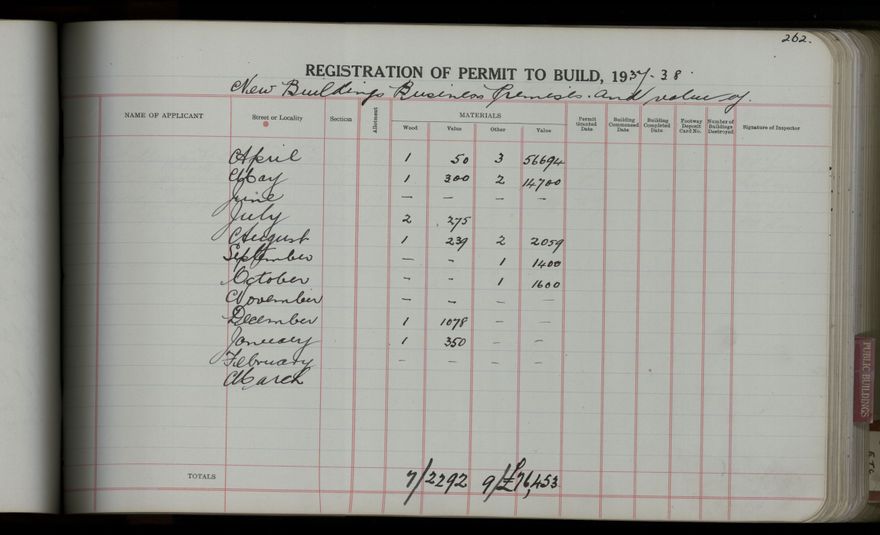 262.
REGISTRATION OF PERMIT TO BUILD, 1937-38.
New Buildings Business Premises and value of.
NAME OF APPLICANT Street or Locality Section Allotment MATERIALS Permit Granted Date Building Commenced Date Building Completed Date Footway Deposit Card No. Number of Buildings Destroyed Signature of Inspector
Wood Value Other Value
April 1 50 3 56694
May 1 300 2 14700
June — — — —
July 2 275
August 1 239 2 2059
September — - 1 1400
October - - 1 1600
November — - — —
December 1 1078 — —
January 1 350 - -
February — — — —
March
TOTALS 7/2292 9/£76,453
PUBLIC BUILDINGS